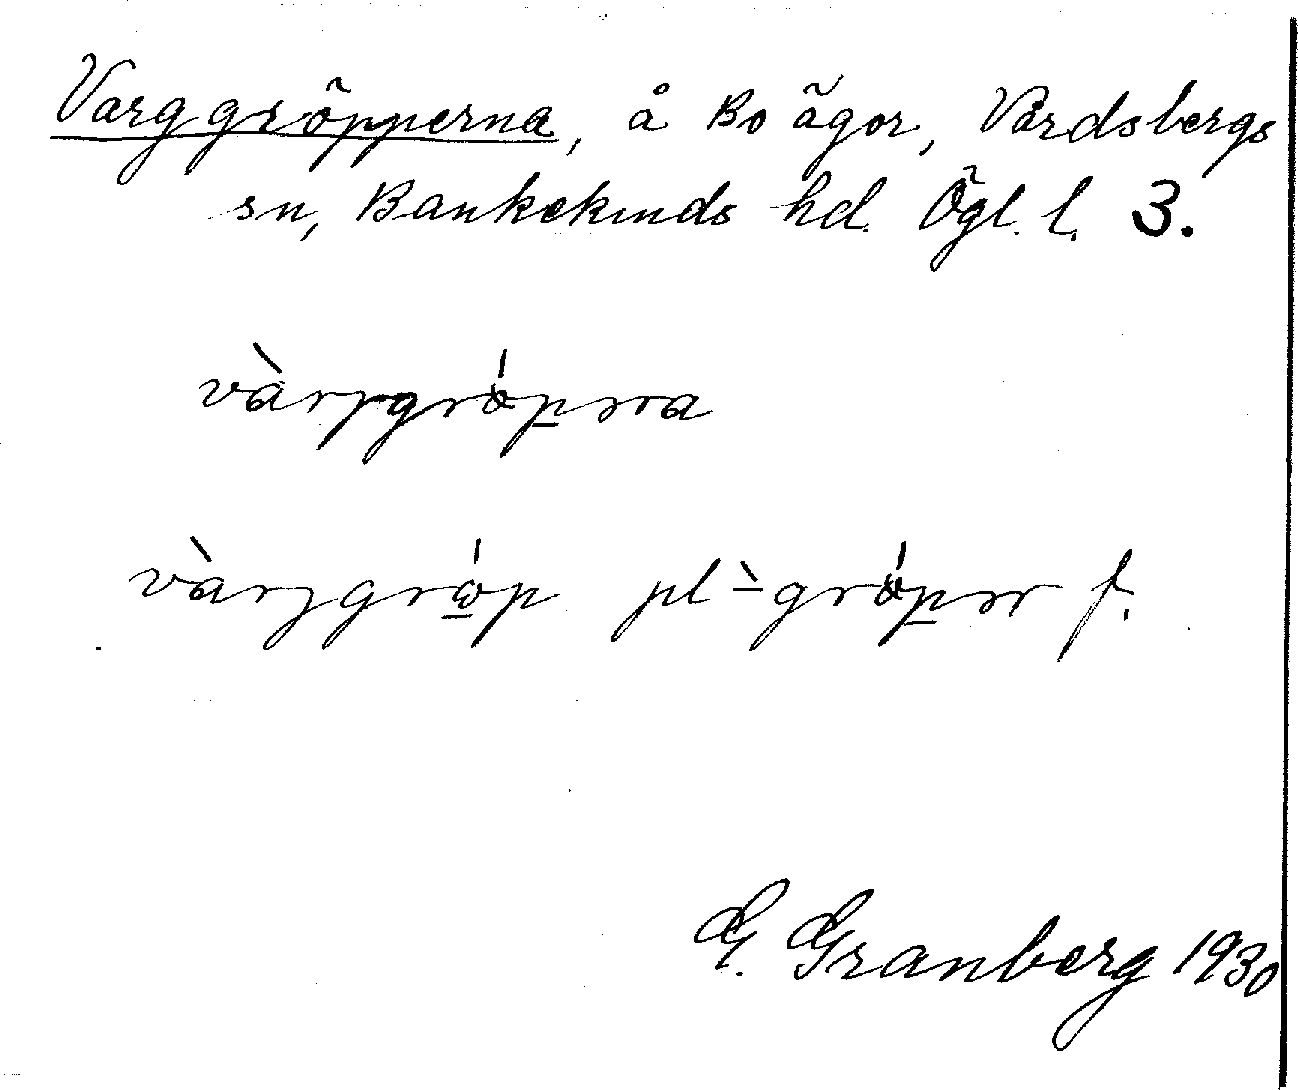 Varggröpperna, å Bo ägor, Vårdsbergs
sn, Bankekinds hd. Ögl. l. 3.
pl f.
G. Granberg 1930